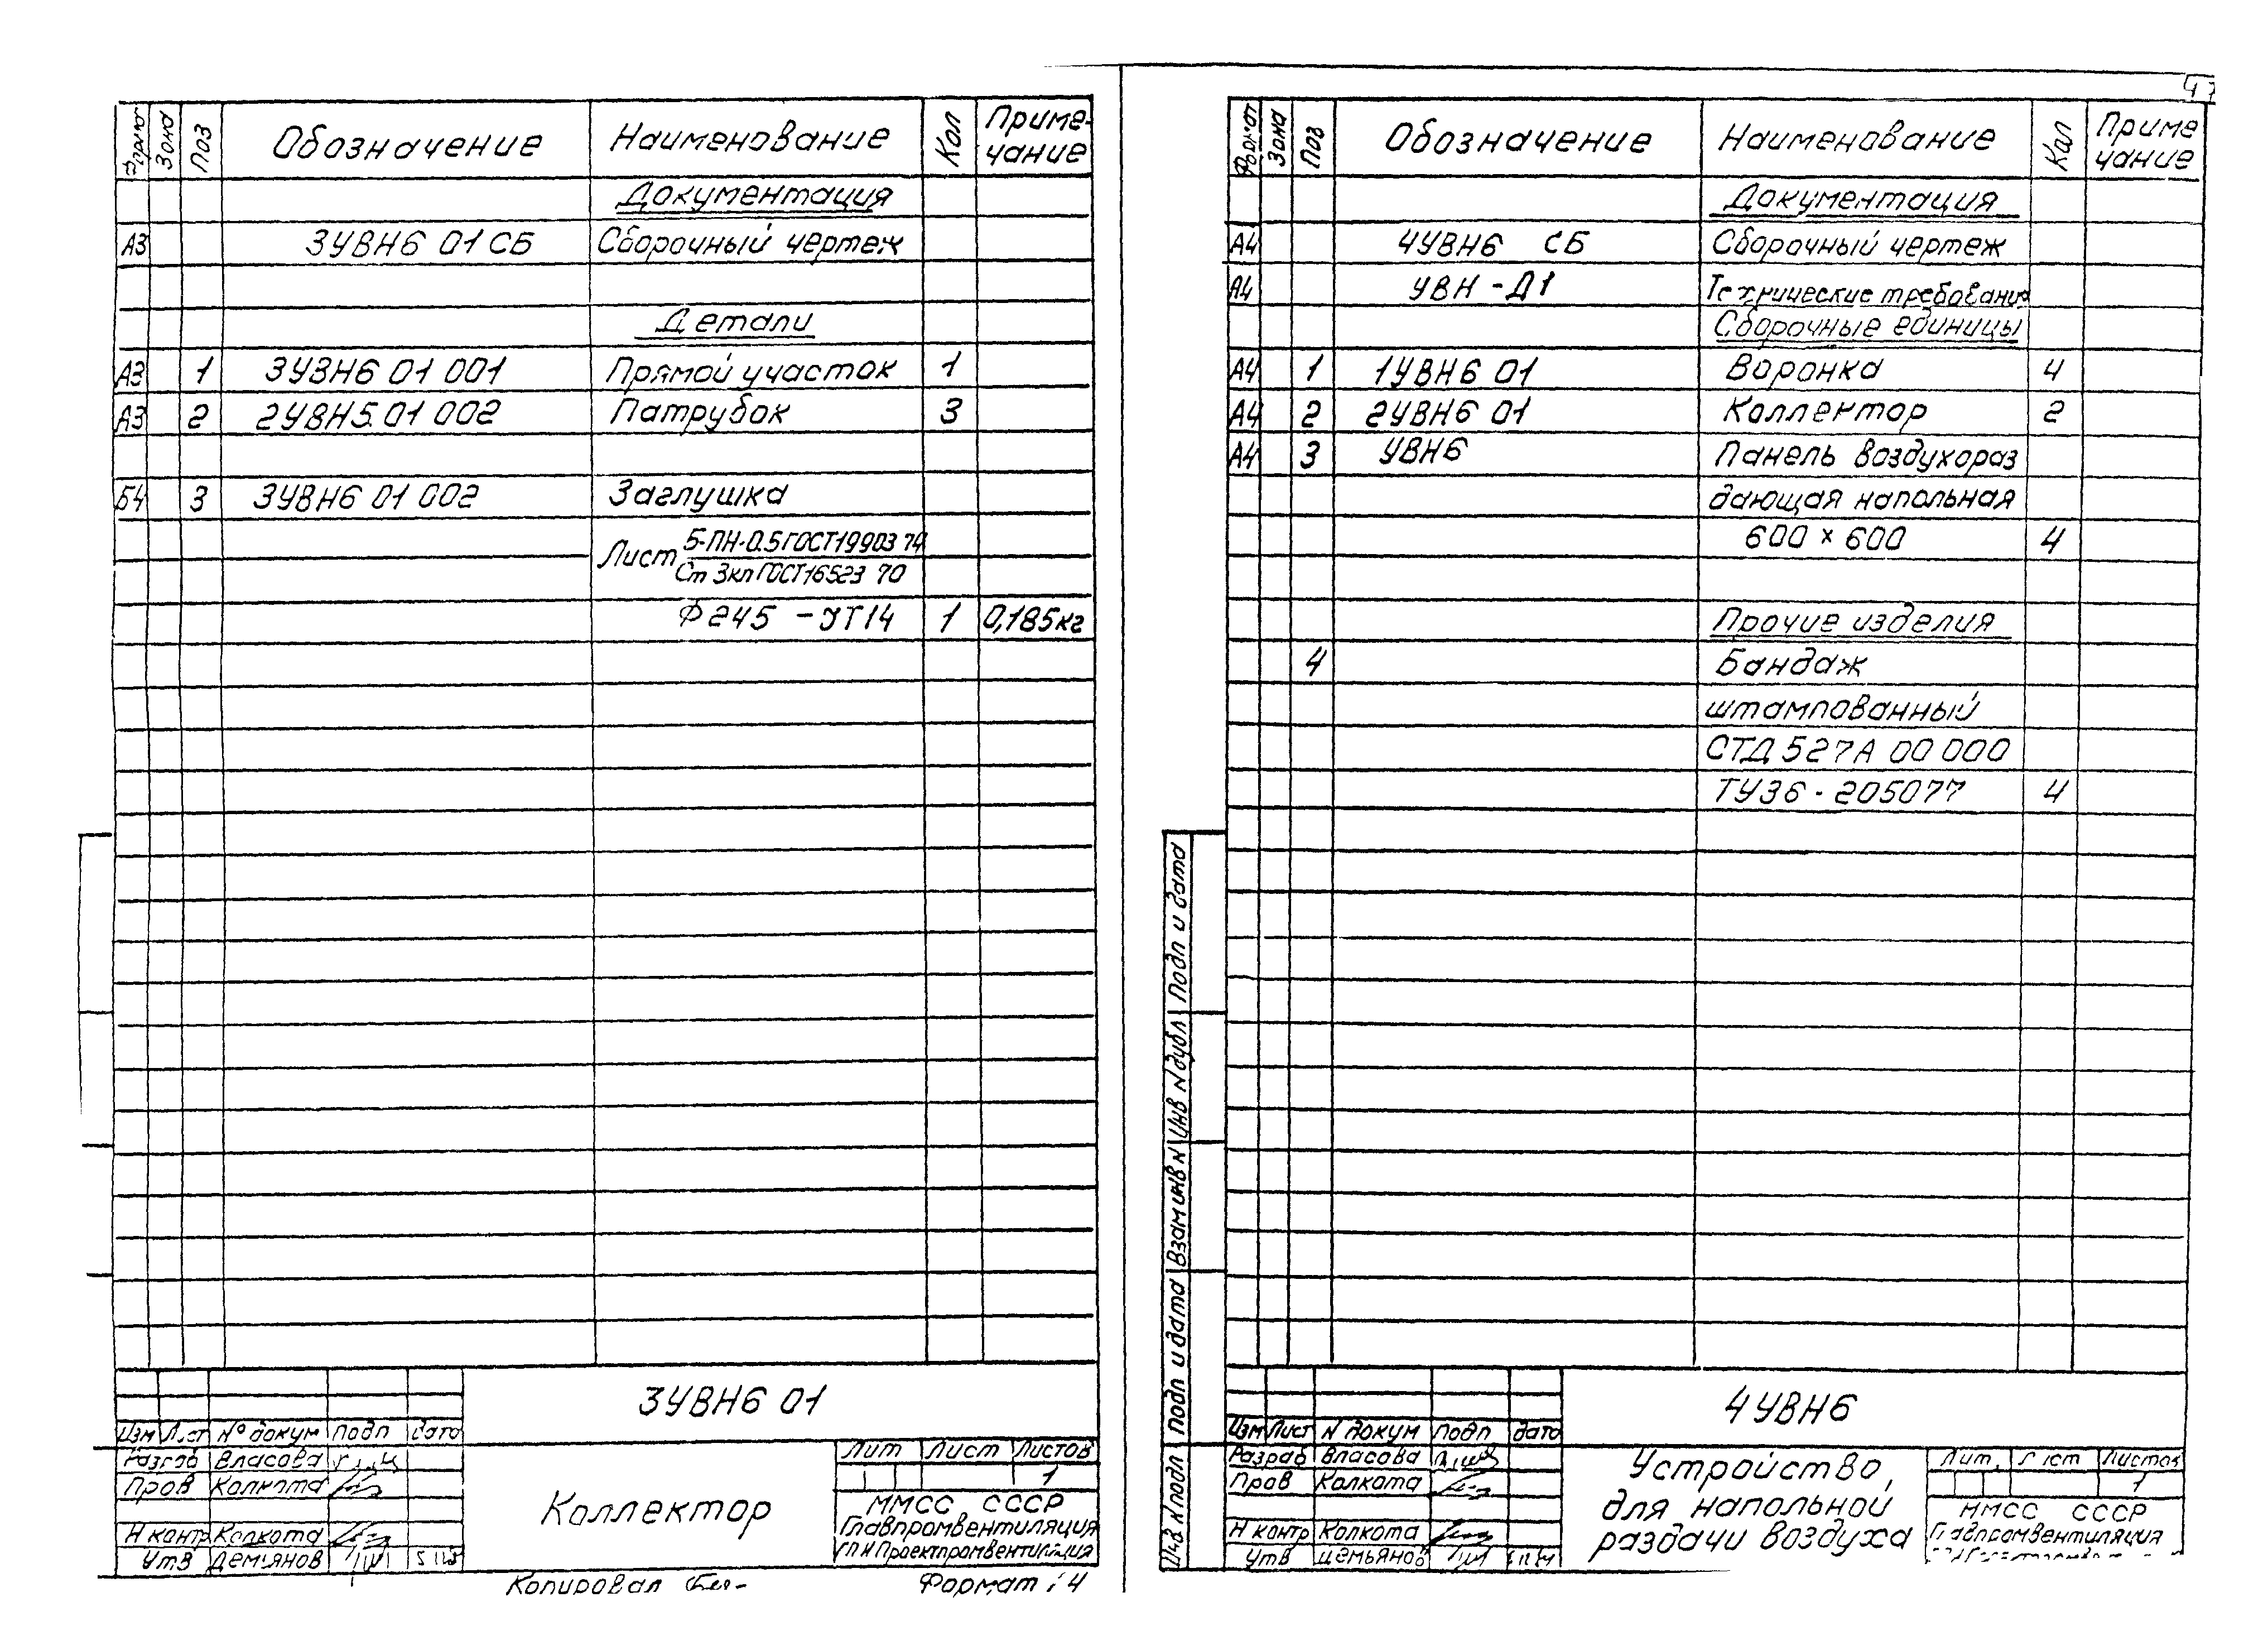 Формат Зона Поз Обозначение Наименование Кол Приме-чание
Документация
А3 3УВН6 01 СБ Сборочный чертеж
Детали
А3 1 3УВН6 01 001 Прямой участок 1
А3 2 2УВН5.01 002 Патрубок 3
Б4 3 3УВН6 01 002 Заглушка
Лист Б-ПН-0.5 ГОСТ19903 74
Ст 3кп ГОСТ16523 70
Ф245 -УТ14 1 0,185кг
3УВН6 01
Изм Лист № докум подп дата
Разраб Власова
Пров Колкота
Н контр Колкота
Утв Демьянов
Коллектор
Лит Лист Листов
1
ММСС СССР
Главпромвентиляция
ГПИ Проектпромвентиляция
Копировал
Формат 4
47
Формат Зона Поз Обозначение Наименование Кол Приме чание
Документация
А4 4УВН6 СБ Сборочный чертеж
А4 УВН -Д1 Технические требования
Сборочные единицы
А4 1 1УВН6 01 Воронка 4
А4 2 2УВН6 01 Коллектор 2
А4 3 УВН6 Панель воздухораз
дающая напольная
600 × 600 4
Прочие изделия
4 Бандаж
штампованный
СТД 527А 00 000
ТУ36 - 205077 4
Инв N подл Подп и дата Взам инв N Инв N дубл Подп и дата
4УВН6
Изм Лист N докум подп дата
Разраб Власова
Пров Колкота
Н контр Колкота
Утв Демьянов
Устройство,
для напольной
раздачи воздуха
Лит. Лист Листов
1
ММСС СССР
Главпромвентиляция